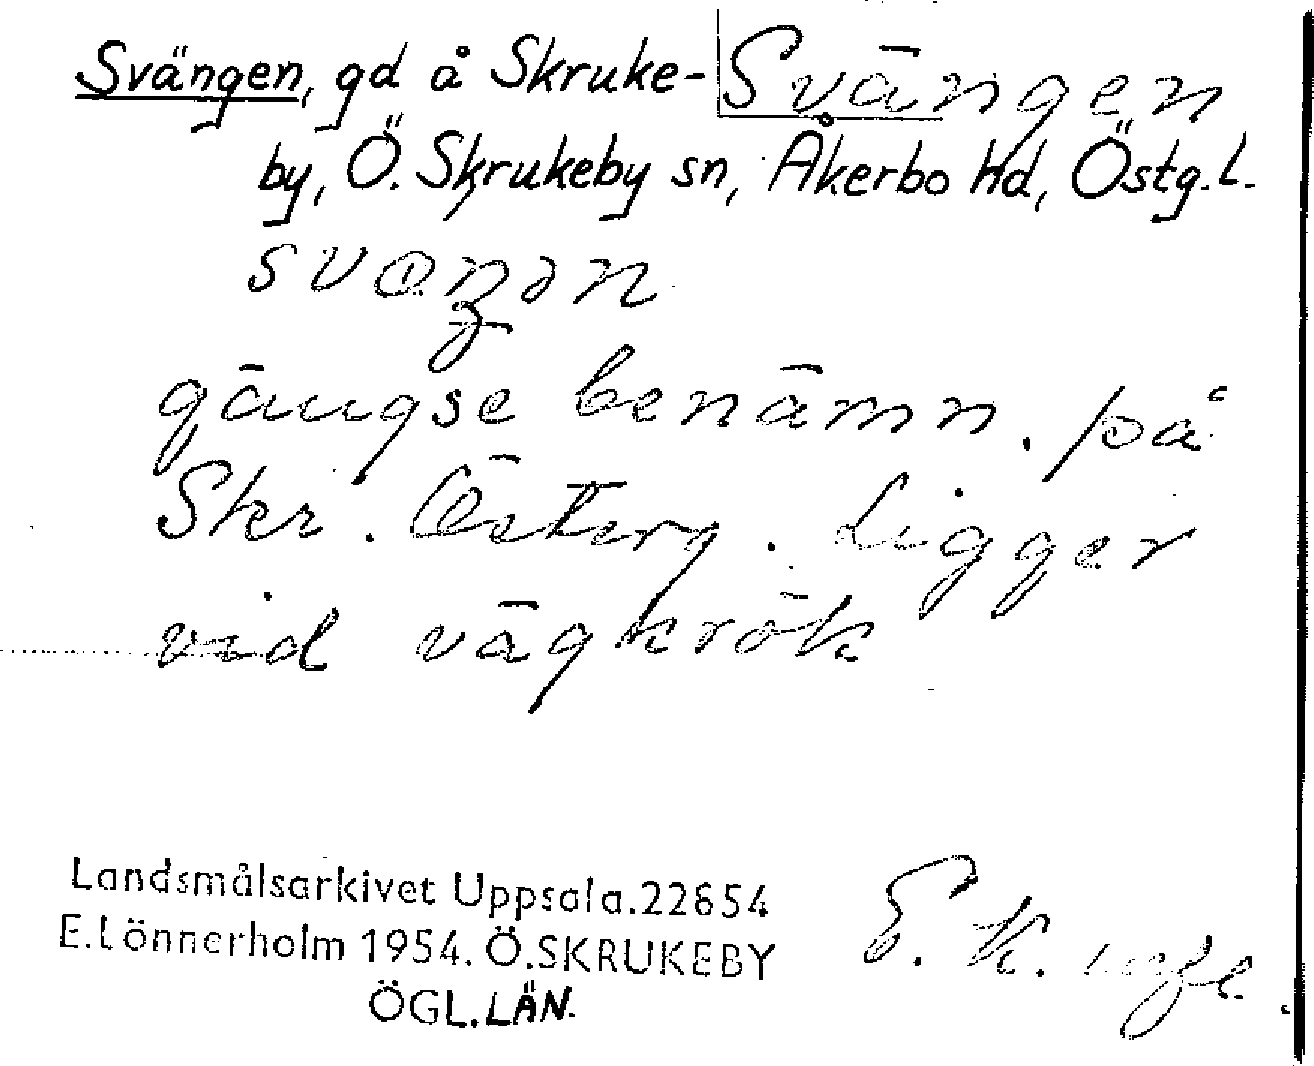 Svängen, gd å Skruke- Svängen
by, Ö. Skrukeby sn, Åkerbo hd, Östg.l.
gängse benämn. på
Skr. Österg. Ligger
vid vägkrök
Landsmålsarkivet Uppsala.22654
E.Lönnerholm 1954. Ö.SKRUKEBY
ÖGL.LÄN.
E. K.